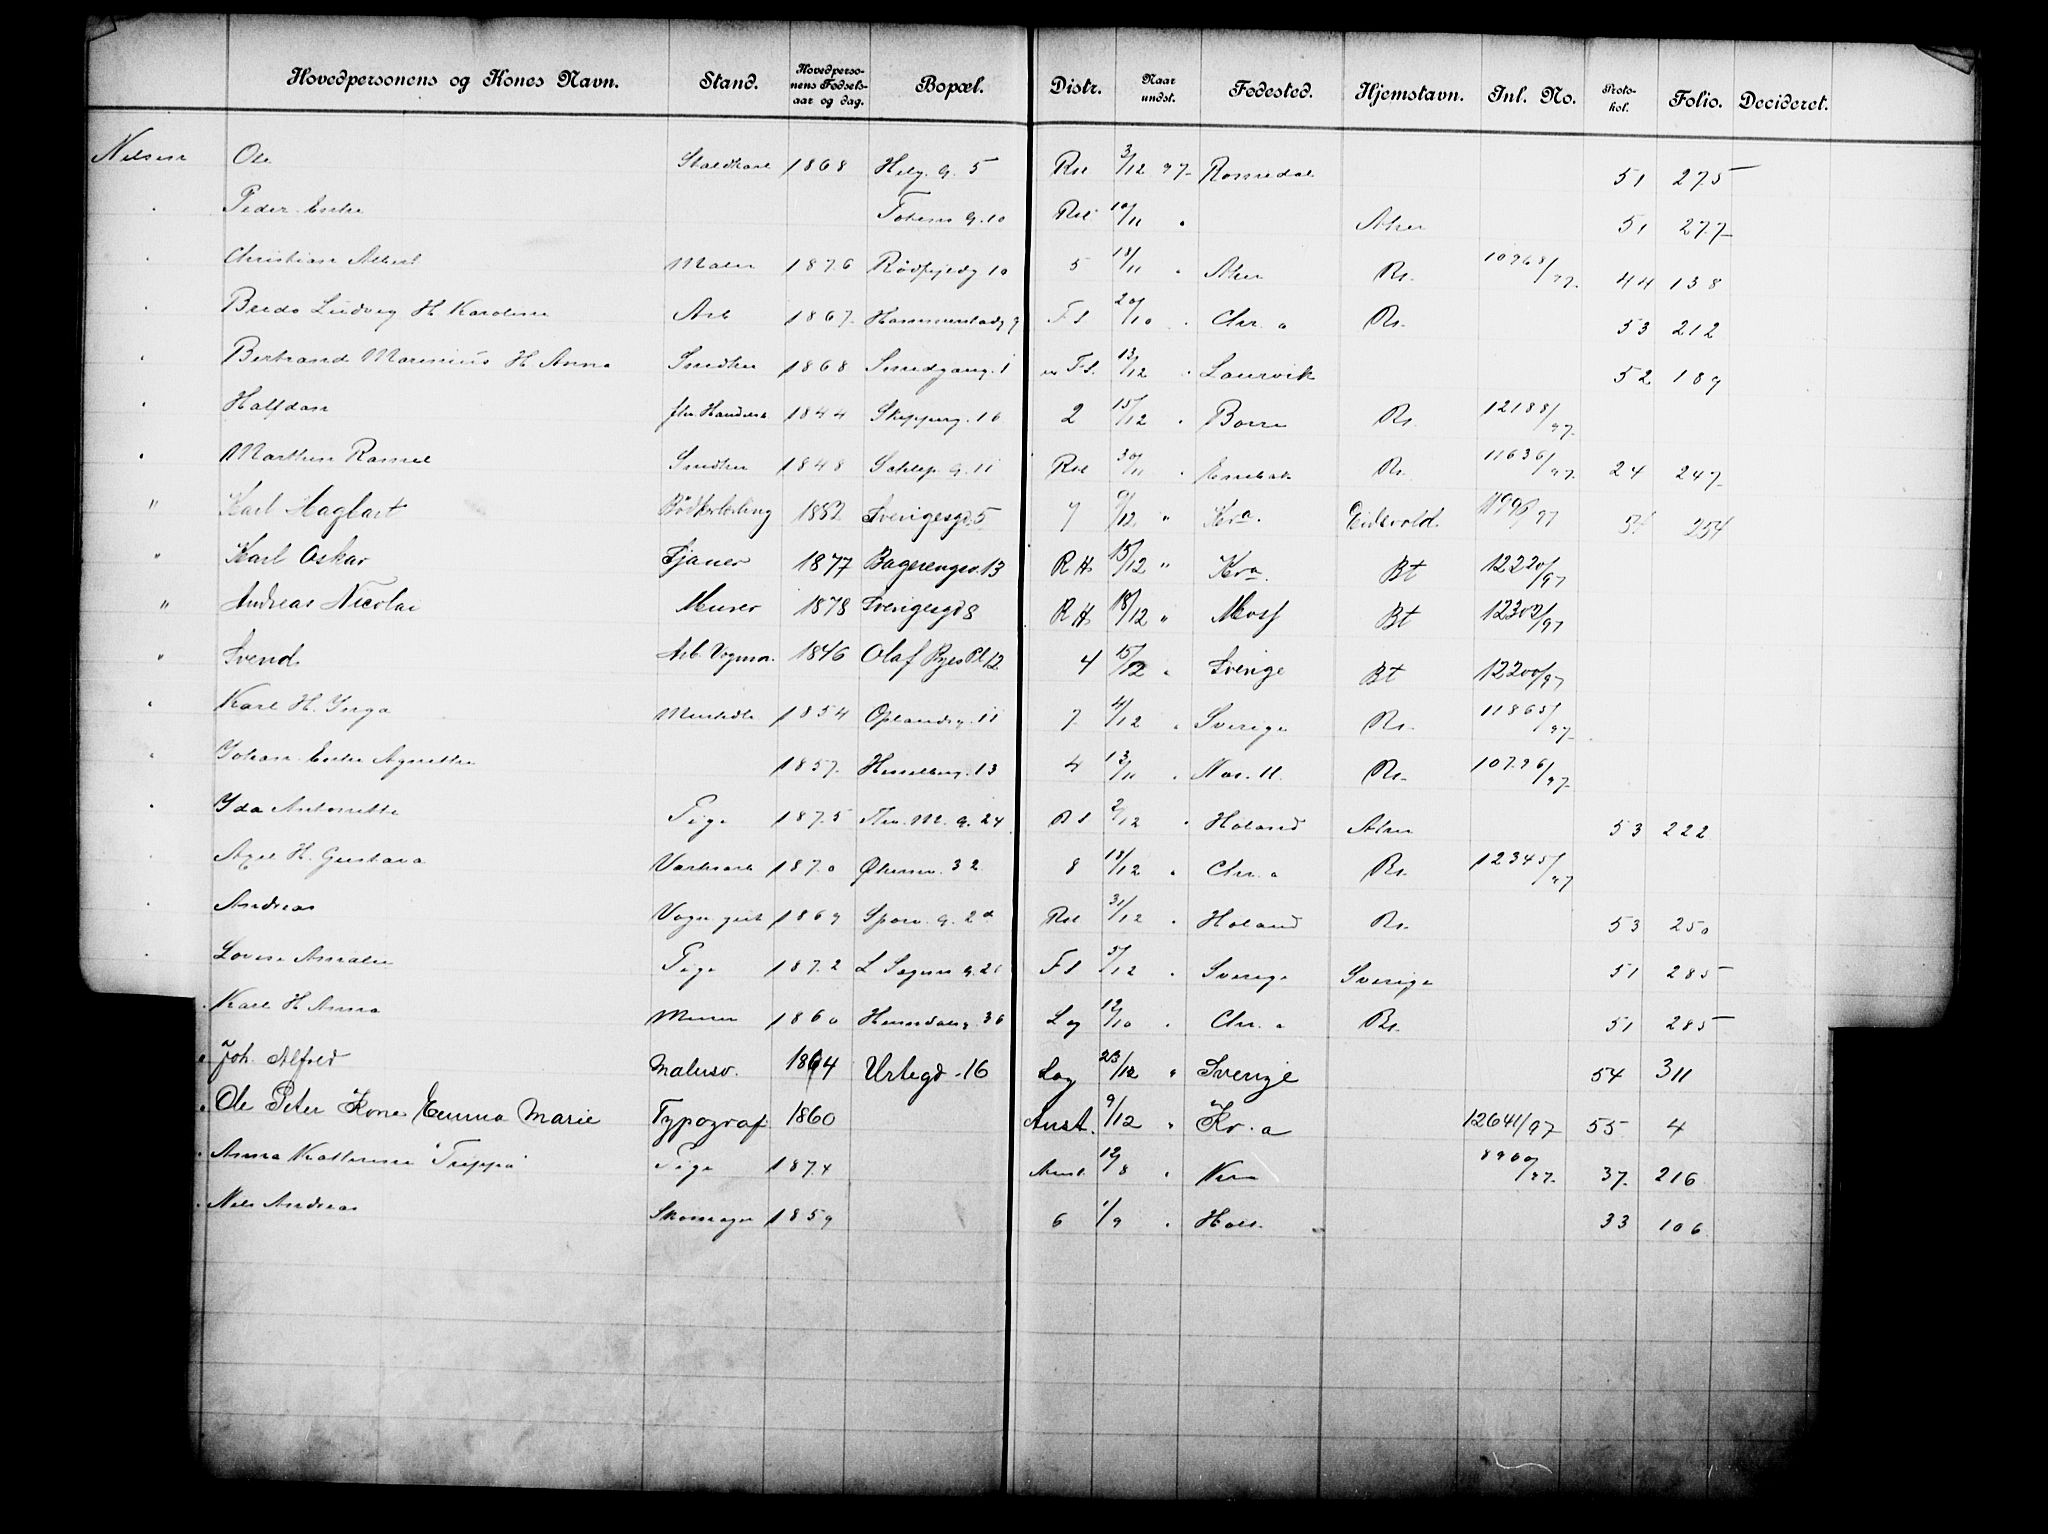 Hovedpersonens og Kones Navn. Stand. Hovedpersonens Fødselsaar og dag. Bopæl. Distr. Naar undst. Fødested. Hjemstavn. Inl. No. Protokol. Folio. Decideret.
Nilsen Ole Staldkarl 1868 Helg. g. 5 Rst 3/12 97 Romedal 51 275
Peder Enke g. 10 Rst 10/11 Aker 51 277
Christian Albert Maler 1876 10 5 18/11 Aker Rs. 10968/97 44 138
Bredo Ludvig H. Karoline Arb 1867 Hammerstadg 9 Fs 20/10 Chr. a Rs. 53 212
Bertrand Marinius H. Anna Snedker 1868 Smedgang. 1 Fs. 13/12 Laurvik 52 189
Halfdan fhv. Handelsb 1844 Skipperg. 16 2 15/12 Borre Rs. 12188/97
Marthin Snedker 1848 g. 11 Rst 30/11 Enebak Rs. 11636/97 24 247
" Karl Hagbart Bødkerlærling 1882 Sverigesgd 5 7 9/12 " Kra. Eidsvold 254
" Karl Oskar Tjener 1877 Bagerengsv. 13 RH 15/12 " Kra. Bt 12220/97
" Andreas Nicolai Murer 1878 Sverigesgd 8 RH 18/12 " Moss Bt 12302/97
" Svend Arb. Vognm. 1846 Olaf Ryes Pl 12 4 15/12 Sverige Bt 12200/97
Karl H. Inga 1854 Oplandsg. 11 7 4/12 Sverige Rs. 11865/97
Johan Enke Agnethe 1857 Hesselbergg. 13 4 13/11 Nes. H. Rs. 10796/97
Ida Antonette Pige 1875 Thv. M. g. 24 2/12 Høland Aker 53 222
Axel H. Gustava Værksarb 1870 Økernv. 32 8 18/12 Chr. a Rs. 12345/97
Andreas Vogn 1869 Sporv. g. 2 a Rst 31/12 Høland Rs. 53 250
Lovise Amalie Pige 1872 L Fs 5/12 Sverige Sverige 51 285
Karl H. Anna Murer 1860 Heimdalsg. 36 Log 12/10 Chr. a Rs. 51 285
Joh. Alfred Malersv. 1864 Urtegd. 16 Log 23/12 " Sverige 54 311
Ole Peter Kone Emma Marie Typograf 1860 Anst. 9/12 " Kr. a 12641/97 55 4
Anna Kathrine "Trippa" Pige 1874 Anst 12/8 8960/97 37 216
Nils Andreas Skomager 1859 6 1/9 Holt 33 106